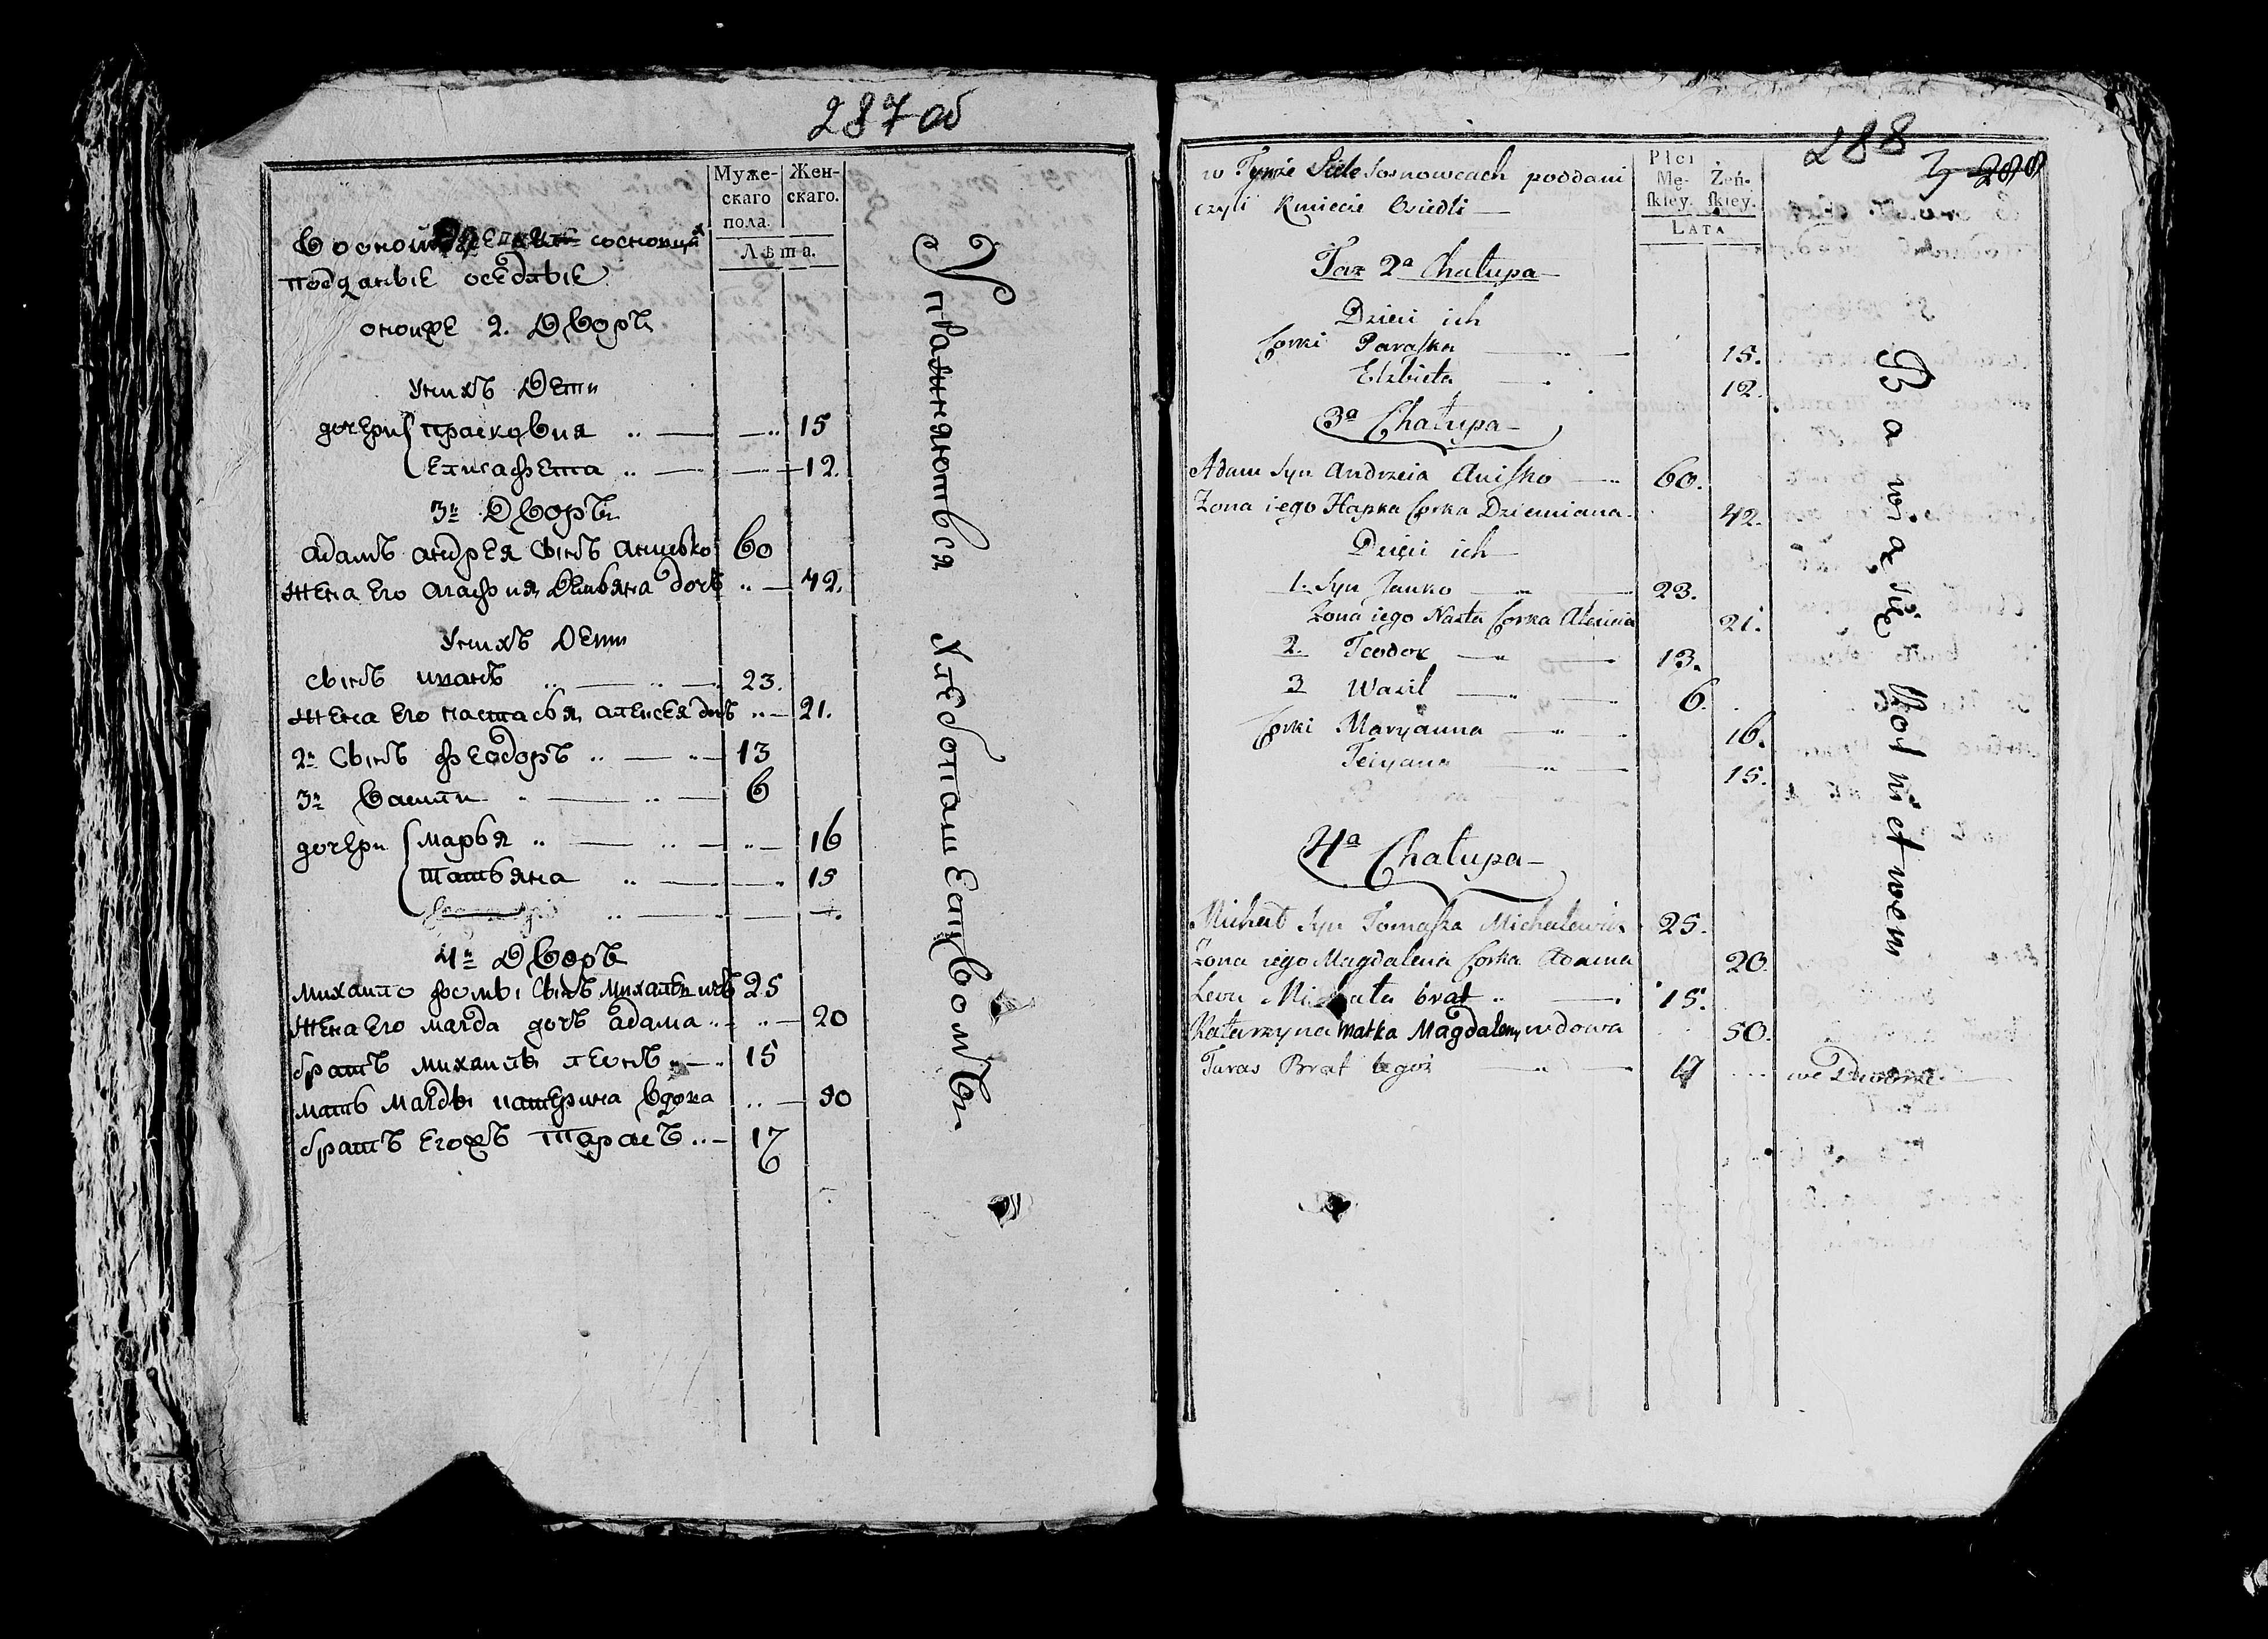 287 об
Муже-
скаго
пола.
Жен-
скаго.
Лѣта.
Состовцахъ
подданые оседлые
отойже 2. Дворъ
Унихъ Дети
дочери Прасковия 15
Елисафета 12.
3й Дворъ
Адамъ андрея Сынъ анисько 60
жена Его агафия, Демьяна дочь 42.
Унихъ Дети
Сынъ иванъ 23.
жена Его настасья, алексея дочь 21.
2й Сынъ феодоръ 13
3й Василий 6
дочери Марья 16
Татьяна 15
4й Дворъ
михайло фомы Сынъ михалевичъ 25
жена Его магда дочь адама 20
братъ михаила леонъ 15
мать магды катерина вдова 50
братъ Егожъ тарасъ 17
6
Упражняются Хлебопашеством
288
3 288
w Tymże Siele Sosnowcach poddani
czyli Kmiecie Osiedli
Płci
Mę-
skiey.
Żeń-
skiey.
Lata
Taz 2a Chałupa
Dzieci ich
Corki Paraska 15.
Elzbieta 12.
3a Chałupa
Adam Syn Andrzeia Anisko 60.
Zona iego Hapka Corka Dziemiana 42.
Dzieci ich
1. Syn Janko 23.
Zona iego Nasta Corka Alexieia 21.
2. Teodor 13.
3 Wasil 6.
Corki Maryanna 16.
Tecyana 15.
4a Chałupa
Michał Syn Tomasza Michalewicz 25.
Zona iego Magdalena Corka Adama 20.
Leon Michała brat 15.
Katarzyna matka Magdaleny wdowa 50.
Taras Brat tegoż 17 we Dworze
Bawią się Rolnictwem